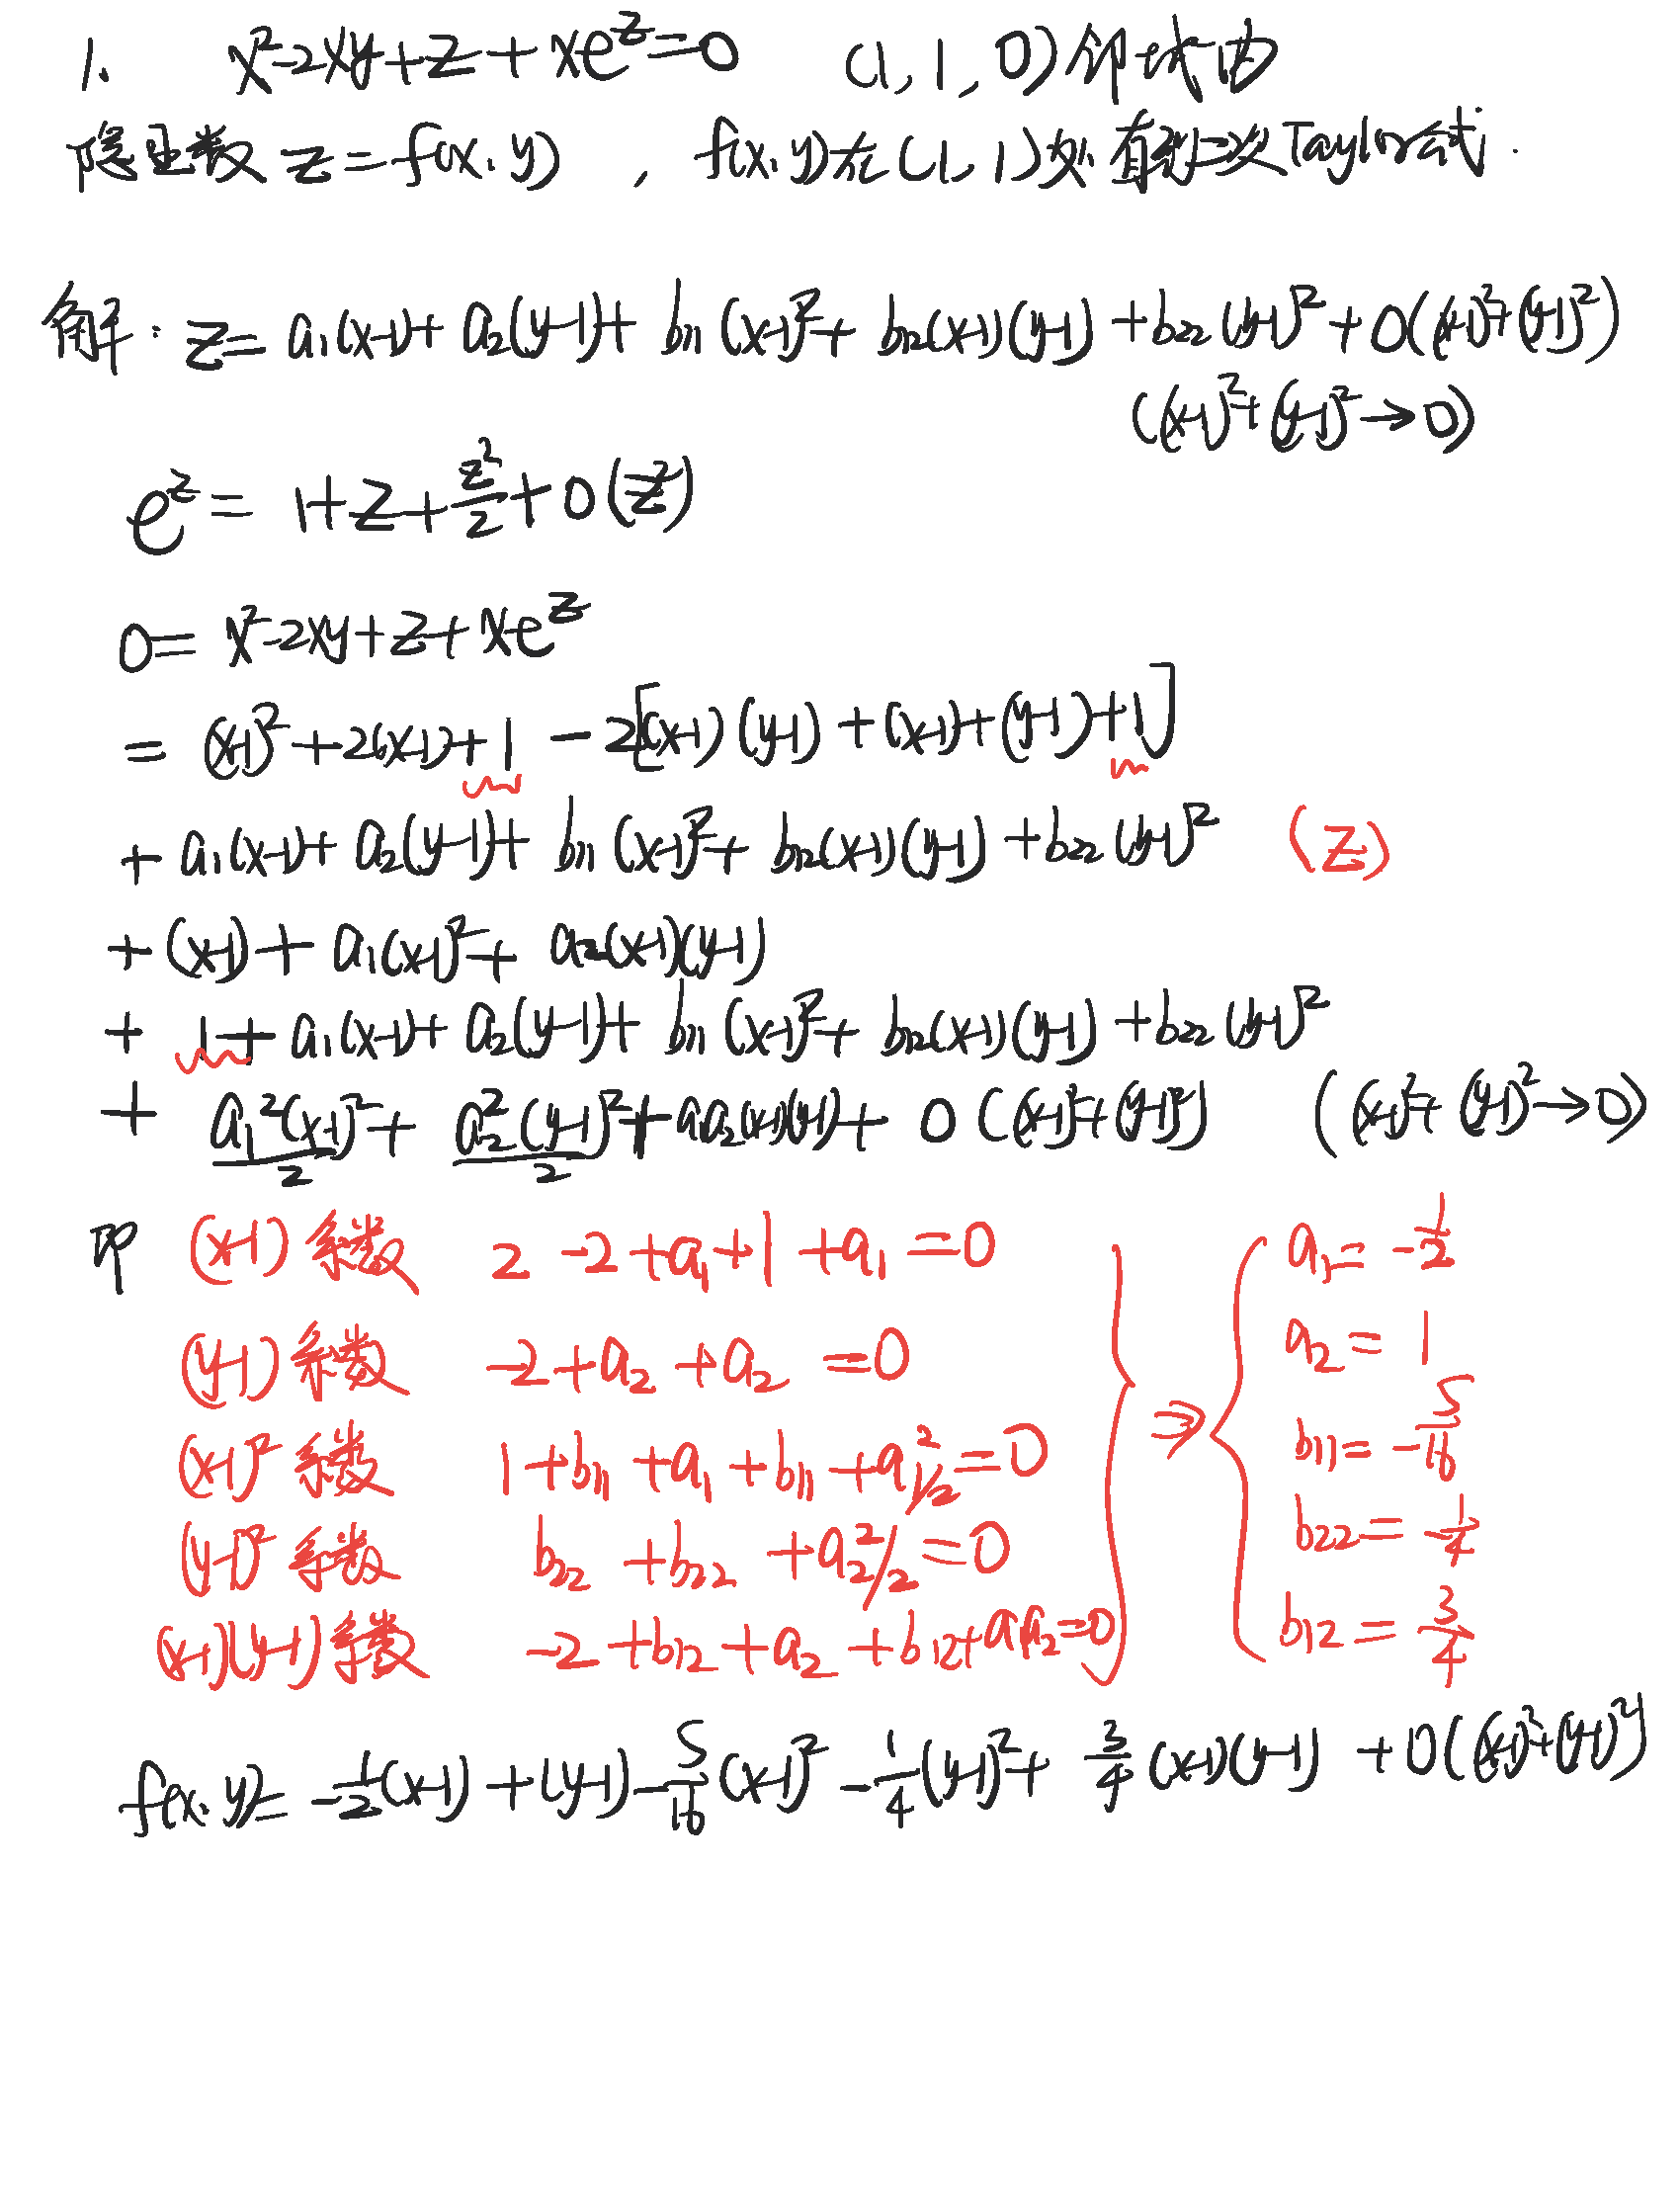 1. x²-2xy+z+xe^z=0 (1,1,0)邻域内
隐函数 z=f(x,y) , f(x,y)在(1,1)处 二次Taylor公式.
解: z= a₁(x-1)+ a₂(y-1)+ b₁₁(x-1)²+ b₁₂(x-1)(y-1) +b₂₂(y-1)²+o((x-1)²+(y-1)²)
((x-1)²+(y-1)²→0)
e^z= 1+z+z²/2+o(z²)
0= x²-2xy+z+xe^z
= (x-1)²+2(x-1)+1 -2[(x-1)(y-1)+(x-1)+(y-1)+1]
+ a₁(x-1)+ a₂(y-1)+ b₁₁(x-1)²+ b₁₂(x-1)(y-1) +b₂₂(y-1)² (z)
+(x-1)+ a₁(x-1)²+ a₂(x-1)(y-1)
+ 1+ a₁(x-1)+ a₂(y-1)+ b₁₁(x-1)²+ b₁₂(x-1)(y-1) +b₂₂(y-1)²
+ a₁²(x-1)²/2+ a₂²(y-1)²/2+a₁a₂(x-1)(y-1)+ o((x-1)²+(y-1)²) ((x-1)²+(y-1)²→0)
即 (x-1)系数 2-2+a₁+1+a₁=0 a₁=-1/2
(y-1)系数 -2+a₂+a₂=0 a₂=1
(x-1)²系数 1+b₁₁+a₁+b₁₁+a₁²/2=0 ⇒ b₁₁=-5/16
(y-1)²系数 b₂₂+b₂₂+a₂²/2=0 b₂₂=-1/4
(x-1)(y-1)系数 -2+b₁₂+a₂+b₁₂+a₁a₂=0 b₁₂=3/4
f(x,y)=-1/2(x-1)+(y-1)-5/16(x-1)²-1/4(y-1)²+3/4(x-1)(y-1)+o((x-1)²+(y-1)²)